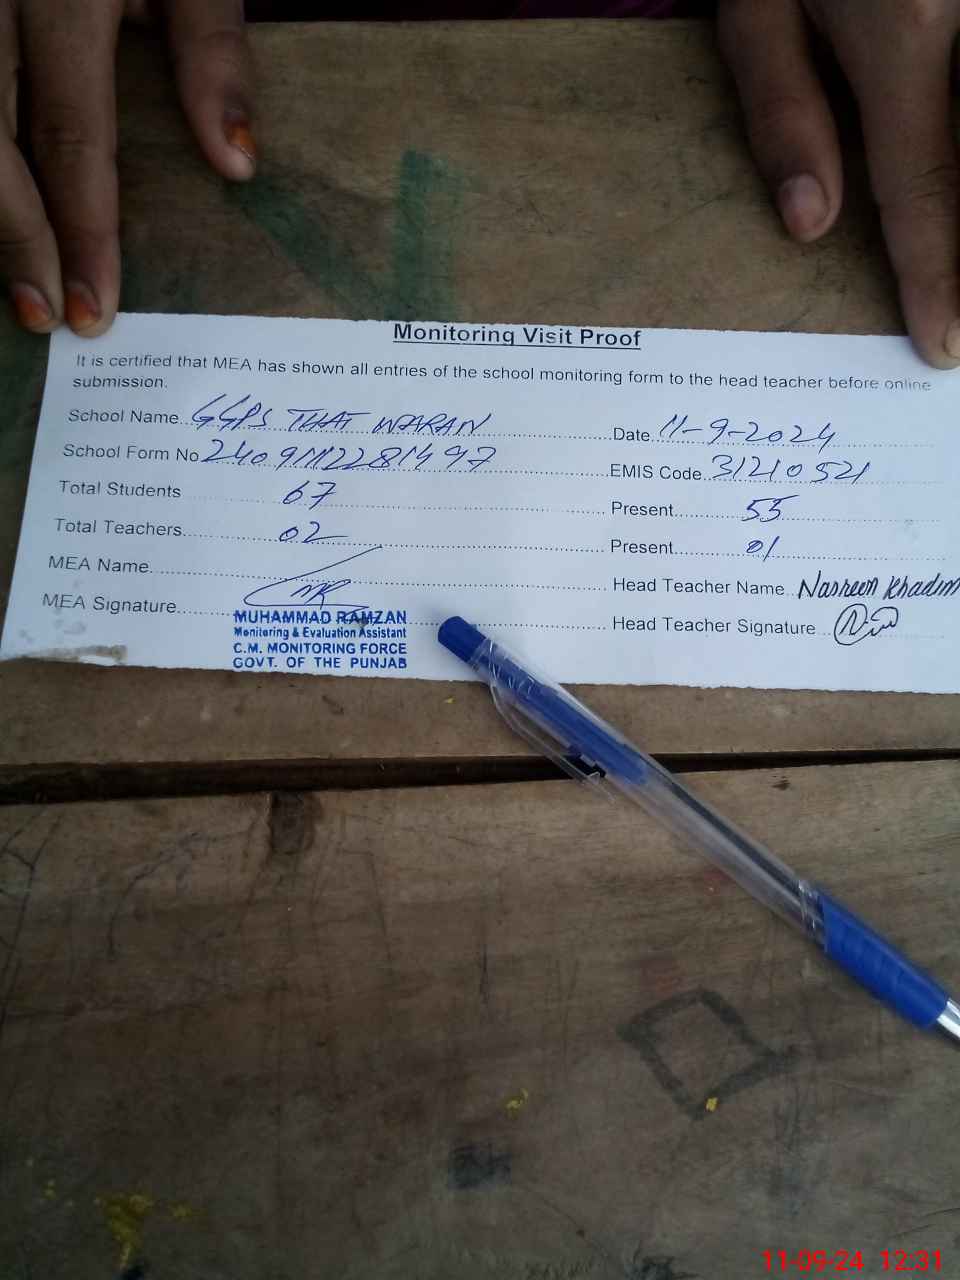 Monitoring Visit Proof
It is certified that MEA has shown all entries of the school monitoring form to the head teacher before online
submission.
School Name GGPS THAT WARAN Date 11-9-2024
School Form No 240911122281497 EMIS Code 31210521
Total Students 67 Present 55
Total Teachers 02 Present 01
MEA Name Head Teacher Name Nasreen Khadim
MEA Signature Head Teacher Signature
MUHAMMAD RAMZAN
Monitoring & Evaluation Assistant
C.M. MONITORING FORCE
GOVT. OF THE PUNJAB
11-09-24 12:31